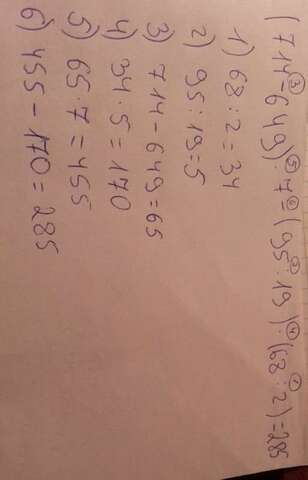 (714 - 649) · 7 = (95 : 19) · (68 : 2) = 285
1) 68 : 2 = 34
2) 95 : 19 = 5
3) 714 - 649 = 65
4) 34 · 5 = 170
5) 65 · 7 = 455
6) 455 - 170 = 285